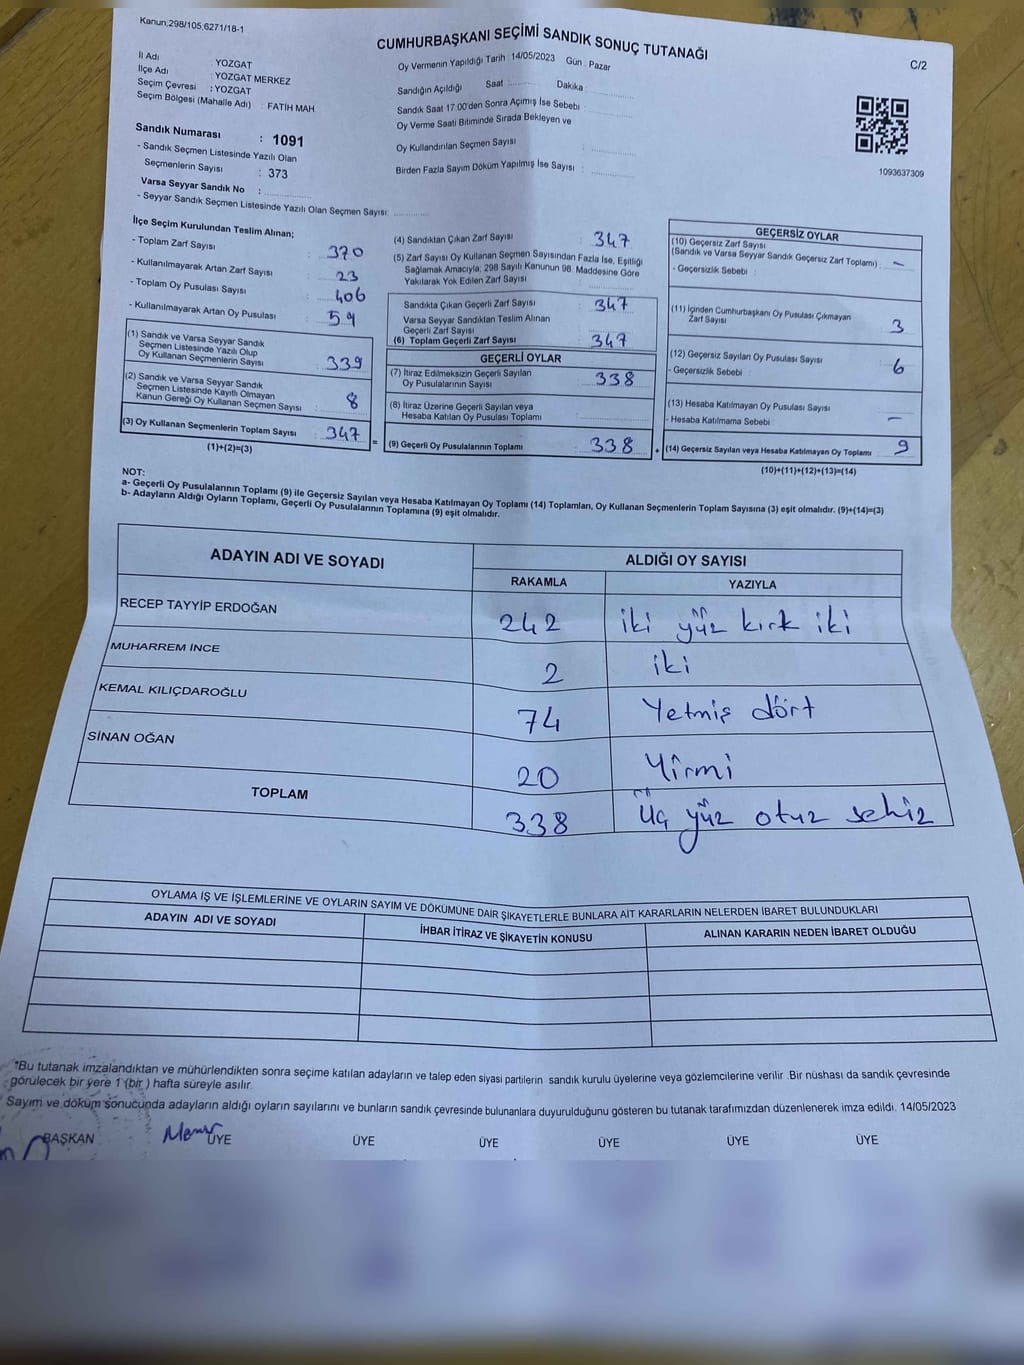 Kanun;298/105,6271/18-1
CUMHURBAŞKANI SEÇİMİ SANDIK SONUÇ TUTANAĞI
C/2
İl Adı : YOZGAT
İlçe Adı : YOZGAT MERKEZ
Seçim Çevresi : YOZGAT
Seçim Bölgesi (Mahalle Adı) : FATİH MAH
Sandık Numarası : 1091
- Sandık Seçmen Listesinde Yazılı Olan
Seçmenlerin Sayısı : 373
Varsa Seyyar Sandık No :
- Seyyar Sandık Seçmen Listesinde Yazılı Olan Seçmen Sayısı:
Oy Vermenin Yapıldığı Tarih : 14/05/2023 Gün : Pazar
Sandığın Açıldığı Saat Dakika
Sandık Saat 17:00'den Sonra Açımış İse Sebebi :
Oy Verme Saati Bitiminde Sırada Bekleyen ve
Oy Kullandırılan Seçmen Sayısı :
Birden Fazla Sayım Döküm Yapılmış İse Sayısı :
1093637309
İlçe Seçim Kurulundan Teslim Alınan;
- Toplam Zarf Sayısı : 370
- Kullanılmayarak Artan Zarf Sayısı : 23
- Toplam Oy Pusulası Sayısı : 406
- Kullanılmayarak Artan Oy Pusulası : 59
(1) Sandık ve Varsa Seyyar Sandık
Seçmen Listesinde Yazılı Olup
Oy Kullanan Seçmenlerin Sayısı : 339
(2) Sandık ve Varsa Seyyar Sandık
Seçmen Listesinde Kayıtlı Olmayan
Kanun Gereği Oy Kullanan Seçmen Sayısı : 8
(3) Oy Kullanan Seçmenlerin Toplam Sayısı : 347
(1)+(2)=(3)
=
(4) Sandıktan Çıkan Zarf Sayısı : 347
(5) Zarf Sayısı Oy Kullanan Seçmen Sayısından Fazla İse, Eşitliği
Sağlamak Amacıyla; 298 Sayılı Kanunun 98. Maddesine Göre
Yakılarak Yok Edilen Zarf Sayısı :
Sandıkta Çıkan Geçerli Zarf Sayısı : 347
Varsa Seyyar Sandıktan Teslim Alınan
Geçerli Zarf Sayısı
(6) Toplam Geçerli Zarf Sayısı : 347
GEÇERLİ OYLAR
(7) İtiraz Edilmeksizin Geçerli Sayılan
Oy Pusulalarının Sayısı : 338
(8) İtiraz Üzerine Geçerli Sayılan veya
Hesaba Katılan Oy Pusulası Toplamı :
(9) Geçerli Oy Pusulalarının Toplamı : 338
+
GEÇERSİZ OYLAR
(10) Geçersiz Zarf Sayısı
(Sandık ve Varsa Seyyar Sandık Geçersiz Zarf Toplamı) : -
- Geçersizlik Sebebi :
(11) İçinden Cumhurbaşkanı Oy Pusulası Çıkmayan
Zarf Sayısı 3
(12) Geçersiz Sayılan Oy Pusulası Sayısı : 6
- Geçersizlik Sebebi :
(13) Hesaba Katılmayan Oy Pusulası Sayısı -
- Hesaba Katılmama Sebebi :
(14) Geçersiz Sayılan veya Hesaba Katılmayan Oy Toplamı : 9
(10)+(11)+(12)+(13)=(14)
NOT:
a- Geçerli Oy Pusulalarının Toplamı (9) ile Geçersiz Sayılan veya Hesaba Katılmayan Oy Toplamı (14) Toplamları, Oy Kullanan Seçmenlerin Toplam Sayısına (3) eşit olmalıdır. (9)+(14)=(3)
b- Adayların Aldığı Oyların Toplamı, Geçerli Oy Pusulalarının Toplamına (9) eşit olmalıdır.
ADAYIN ADI VE SOYADI ALDIĞI OY SAYISI
RAKAMLA YAZIYLA
RECEP TAYYİP ERDOĞAN 242 iki yüz kırk iki
MUHARREM İNCE 2 iki
KEMAL KILIÇDAROĞLU 74 Yetmiş dört
SİNAN OĞAN 20 Yirmi
TOPLAM 338 Üç yüz otuz sekiz
OYLAMA İŞ VE İŞLEMLERİNE VE OYLARIN SAYIM VE DÖKÜMÜNE DAİR ŞİKAYETLERLE BUNLARA AİT KARARLARIN NELERDEN İBARET BULUNDUKLARI
ADAYIN ADI VE SOYADI İHBAR İTİRAZ VE ŞİKAYETİN KONUSU ALINAN KARARIN NEDEN İBARET OLDUĞU
*Bu tutanak imzalandıktan ve mühürlendikten sonra seçime katılan adayların ve talep eden siyasi partilerin sandık kurulu üyelerine veya gözlemcilerine verilir .Bir nüshası da sandık çevresinde
görülecek bir yere 1 (bir ) hafta süreyle asılır.
Sayım ve döküm sonucunda adayların aldığı oyların sayılarını ve bunların sandık çevresinde bulunanlara duyurulduğunu gösteren bu tutanak tarafımızdan düzenlenerek imza edildi. 14/05/2023
BAŞKAN ÜYE ÜYE ÜYE ÜYE ÜYE ÜYE